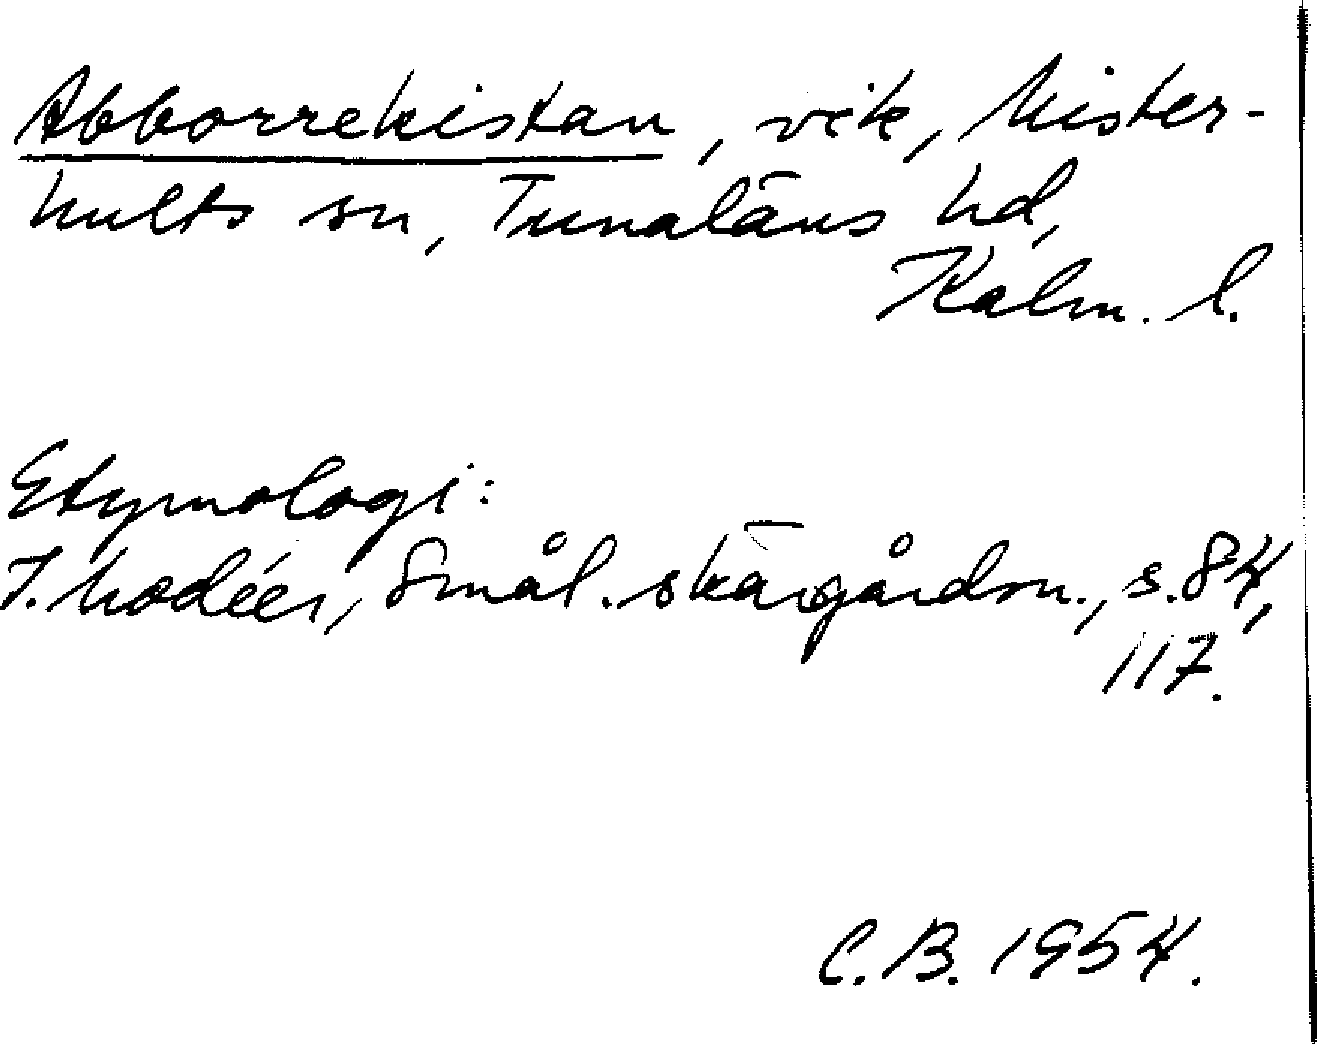 Abborrekistan, vik, Mister-
hults sn, Tunaläns hd,
Kalm. l.
Etymologi:
J. Modéer, Smål. skärgårdsn., s. 84,
117.
C.B. 1954.